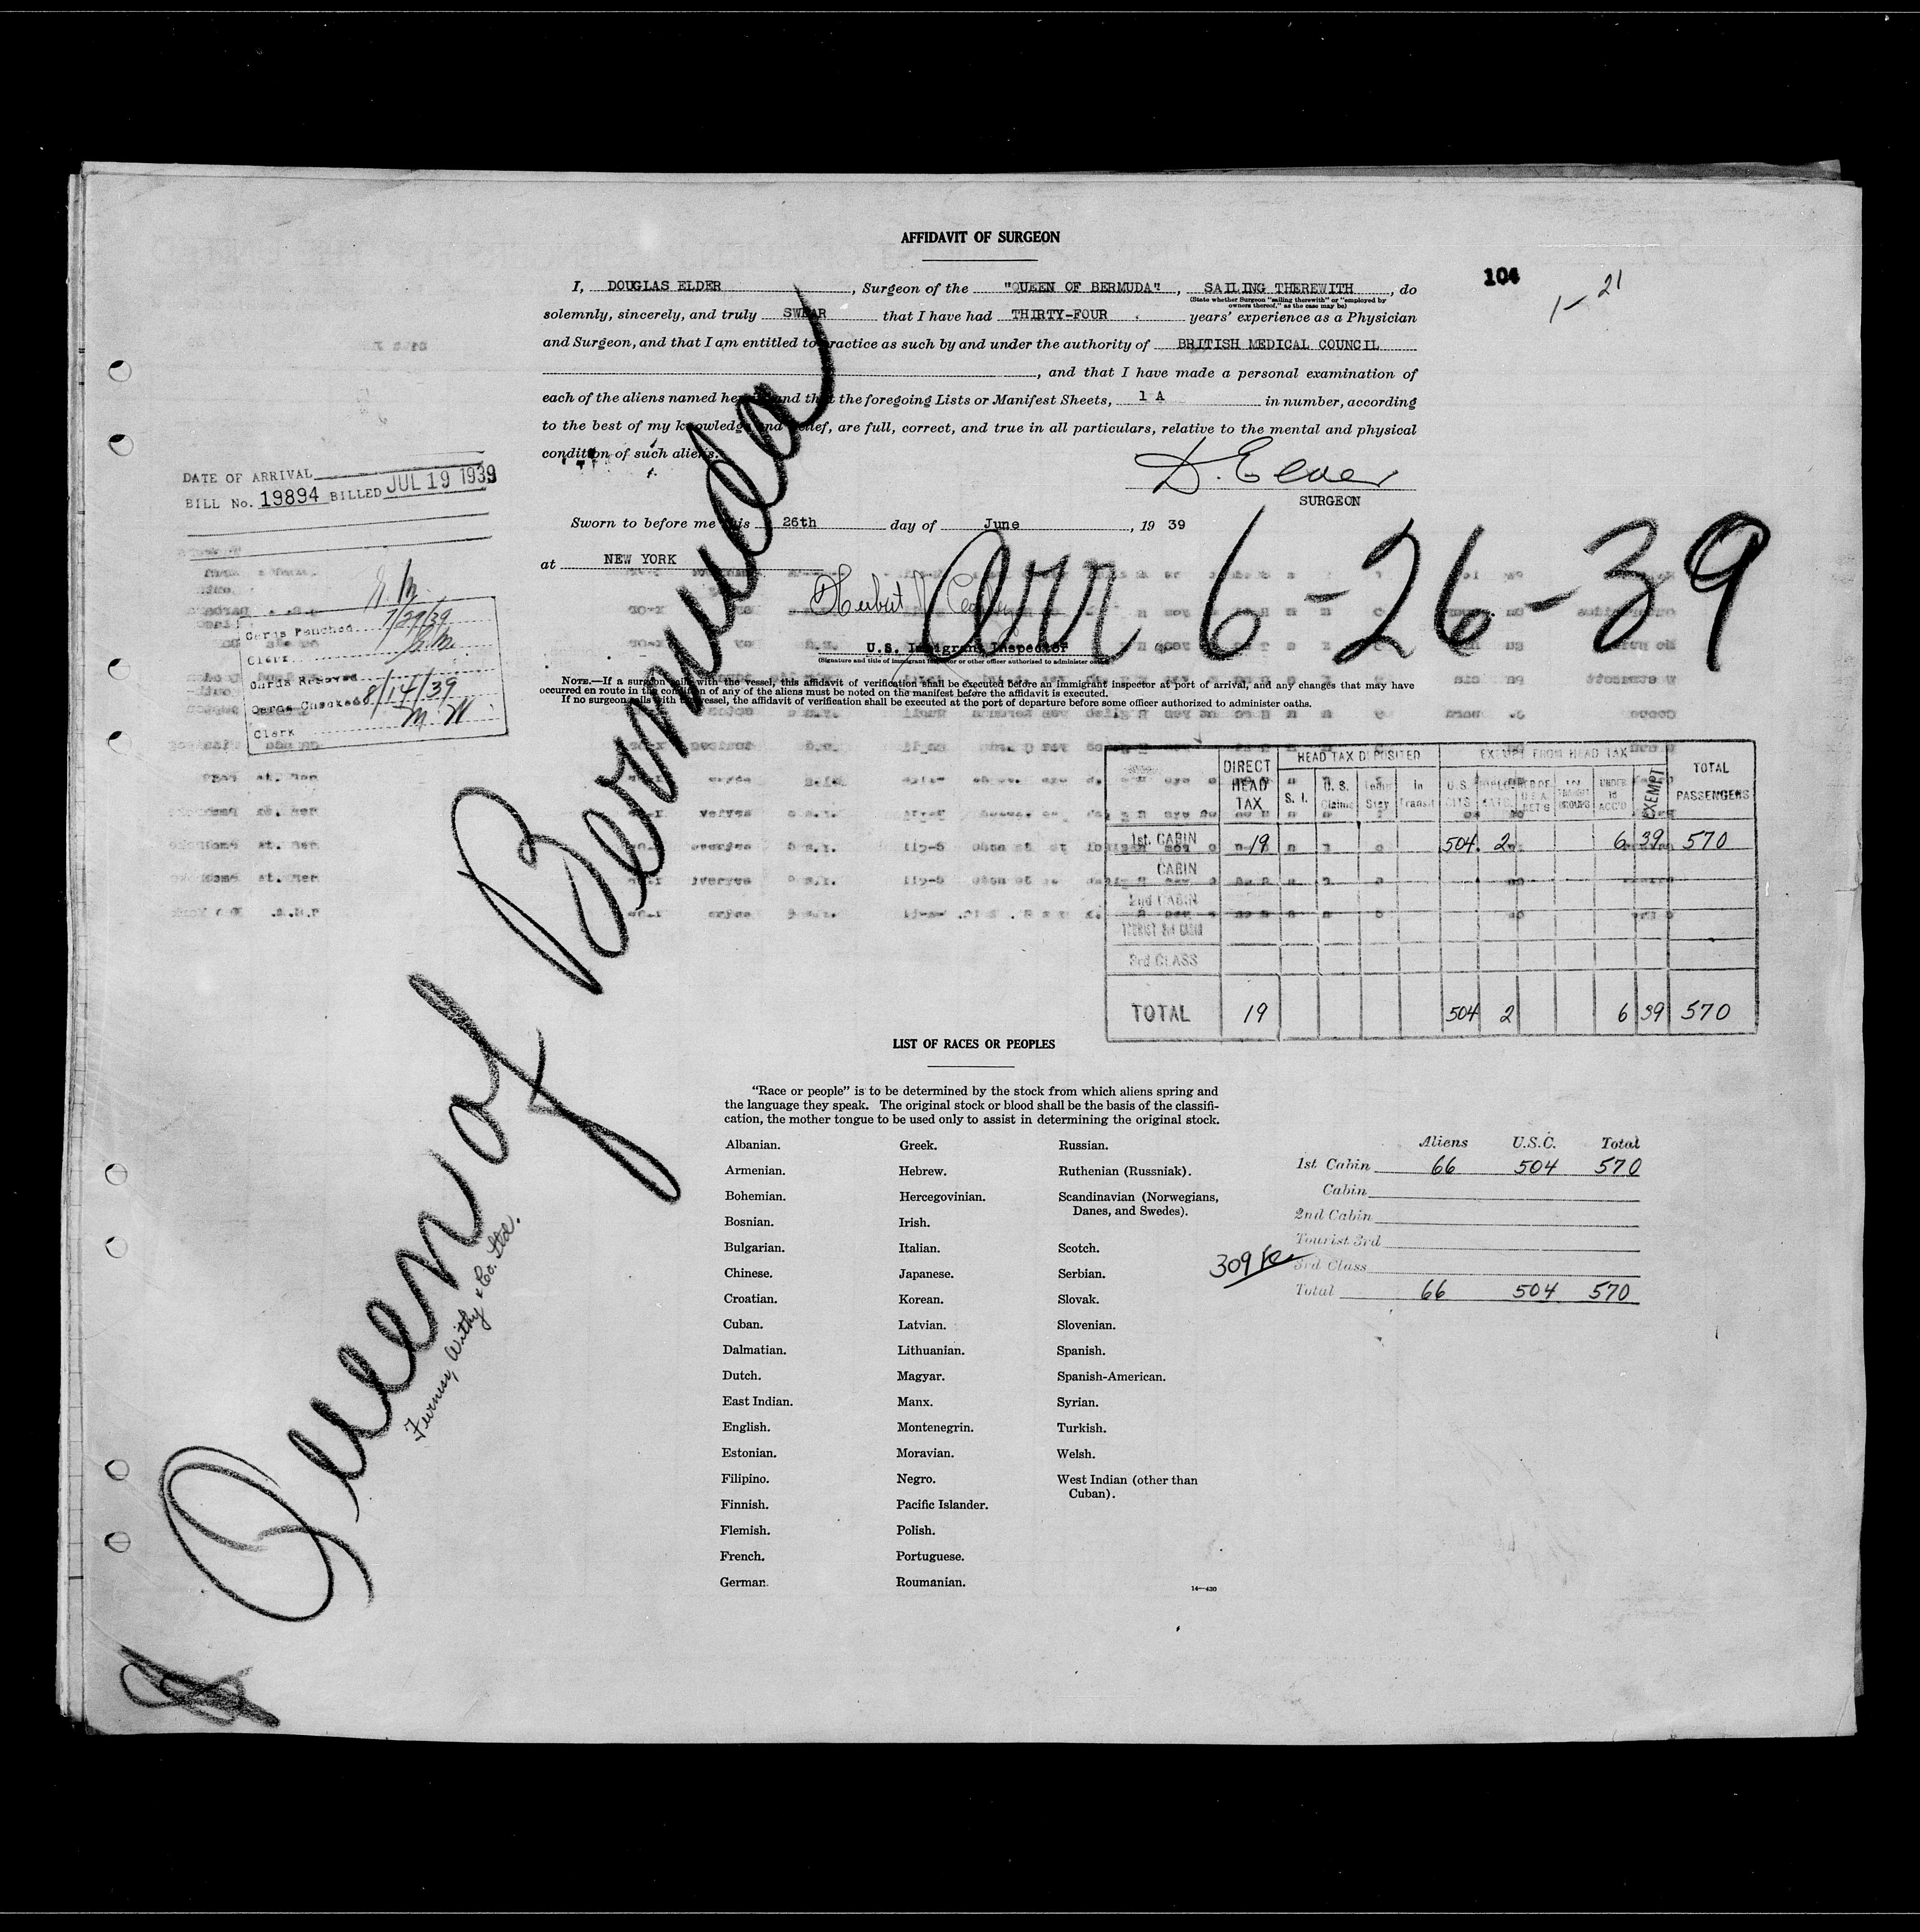 AFFIDAVIT OF SURGEON
104
1-21
I, DOUGLAS ELDER, Surgeon of the "QUEEN OF BERMUDA", SAILING THEREWITH, do
(State whether Surgeon "sailing therewith" or "employed by
owners thereof," as the case may be)
solemnly, sincerely, and truly SWEAR that I have had THIRTY-FOUR years' experience as a Physician
and Surgeon, and that I am entitled to practice as such by and under the authority of BRITISH MEDICAL COUNCIL
, and that I have made a personal examination of
each of the aliens named herein and that the foregoing Lists or Manifest Sheets, 1 A in number, according
to the best of my knowledge and belief, are full, correct, and true in all particulars, relative to the mental and physical
condition of such aliens.
D. Elder
SURGEON
DATE OF ARRIVAL
BILL No. 19894 BILLED JUL 19 1939
Sworn to before me this 26th day of June, 19 39
at NEW YORK
Arr 6-26-39
Herbert
U.S. Immigrant Inspector
(Signature and title of immigrant inspector or other officer authorized to administer oaths)
Cards Punched 7/27/39
Clerk
Cards Removed
Cards Checked 8/14/39
Clerk M. W.
NOTE.—If a surgeon sails with the vessel, this affidavit of verification shall be executed before an immigrant inspector at port of arrival, and any changes that may have
occurred en route in the condition of any of the aliens must be noted on the manifest before the affidavit is executed.
If no surgeon sails with the vessel, the affidavit of verification shall be executed at the port of departure before some officer authorized to administer oaths.
Queen of Bermuda
Furness, Withy & Co. Ltd.
DIRECT HEAD TAX
HEAD TAX DEPOSITED
EXEMPT FROM HEAD TAX
TOTAL PASSENGERS
S. I. U. S. Claims Temp Stay In Transit U.S. CITS UNDER 16 ACC'D EXEMPT
1st. CABIN 19 504 2 6 39 570
CABIN
2nd CABIN
TOURIST 3rd CABIN
3rd CLASS
TOTAL 19 504 2 6 39 570
LIST OF RACES OR PEOPLES
"Race or people" is to be determined by the stock from which aliens spring and
the language they speak. The original stock or blood shall be the basis of the classifi-
cation, the mother tongue to be used only to assist in determining the original stock.
Albanian.
Armenian.
Bohemian.
Bosnian.
Bulgarian.
Chinese.
Croatian.
Cuban.
Dalmatian.
Dutch.
East Indian.
English.
Estonian.
Filipino.
Finnish.
Flemish.
French.
German.
Greek.
Hebrew.
Hercegovinian.
Irish.
Italian.
Japanese.
Korean.
Latvian.
Lithuanian.
Magyar.
Manx.
Montenegrin.
Moravian.
Negro.
Pacific Islander.
Polish.
Portuguese.
Roumanian.
Russian.
Ruthenian (Russniak).
Scandinavian (Norwegians,
Danes, and Swedes).
Scotch.
Serbian.
Slovak.
Slovenian.
Spanish.
Spanish-American.
Syrian.
Turkish.
Welsh.
West Indian (other than
Cuban).
14—430
Aliens U.S.C. Total
1st Cabin 66 504 570
Cabin
2nd Cabin
Tourist 3rd
309
3rd Class
Total 66 504 570